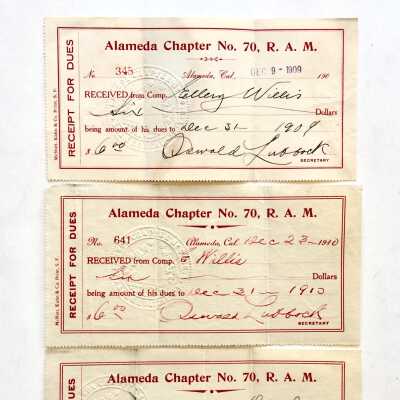 Alameda Chapter No. 70, R. A. M.
No. 345 Alameda, Cal. DEC 9 - 1909 190
RECEIVED from Comp. Ellery Willis
Six Dollars
being amount of his dues to Dec 31 - 1909
$ 6.00 Oswald Lubbock
SECRETARY
RECEIPT FOR DUES
Alameda Chapter No. 70, R. A. M.
No. 641 Alameda, Cal. Dec 23 - 1910
RECEIVED from Comp. E Willis
Six Dollars
being amount of his dues to Dec 31 - 1910
$ 6.00 Oswald Lubbock
SECRETARY
RECEIPT FOR DUES
Alameda Chapter No. 70, R. A. M.
UES